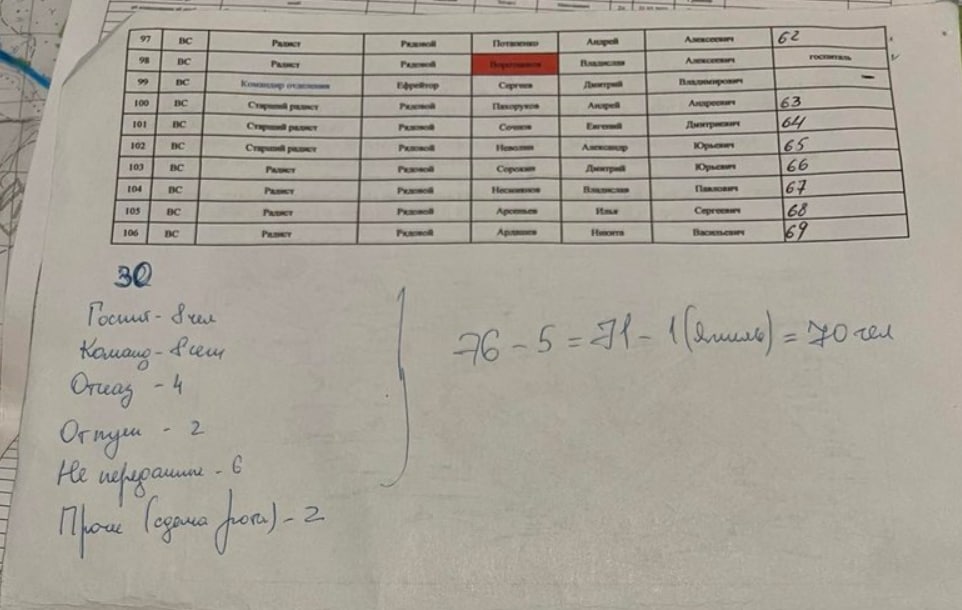 97 ВС Радист Рядовой Потапенко Андрей Алексеевич 62
98 ВС Радист Рядовой Владислав Алексеевич госпиталь
99 ВС Командир отделения Ефрейтор Сергеев Дмитрий Владимирович –
100 ВС Старший радист Рядовой Пахоруков Андрей Андреевич 63
101 ВС Старший радист Рядовой Евгений Дмитриевич 64
102 ВС Старший радист Рядовой Неволин Александр Юрьевич 65
103 ВС Радист Рядовой Сорокин Дмитрий Юрьевич 66
104 ВС Радист Рядовой Владислав Павлович 67
105 ВС Радист Рядовой Арсеньев Илья Сергеевич 68
106 ВС Радист Рядовой Никита Васильевич 69
30
Госпит - 8 чел
Команд - 8 чел
Отказ - 4
76 - 5 = 71 - 1 ( ) = 70 чел
Отпуск - 2
Не - 6
Проч ( рота) - 2